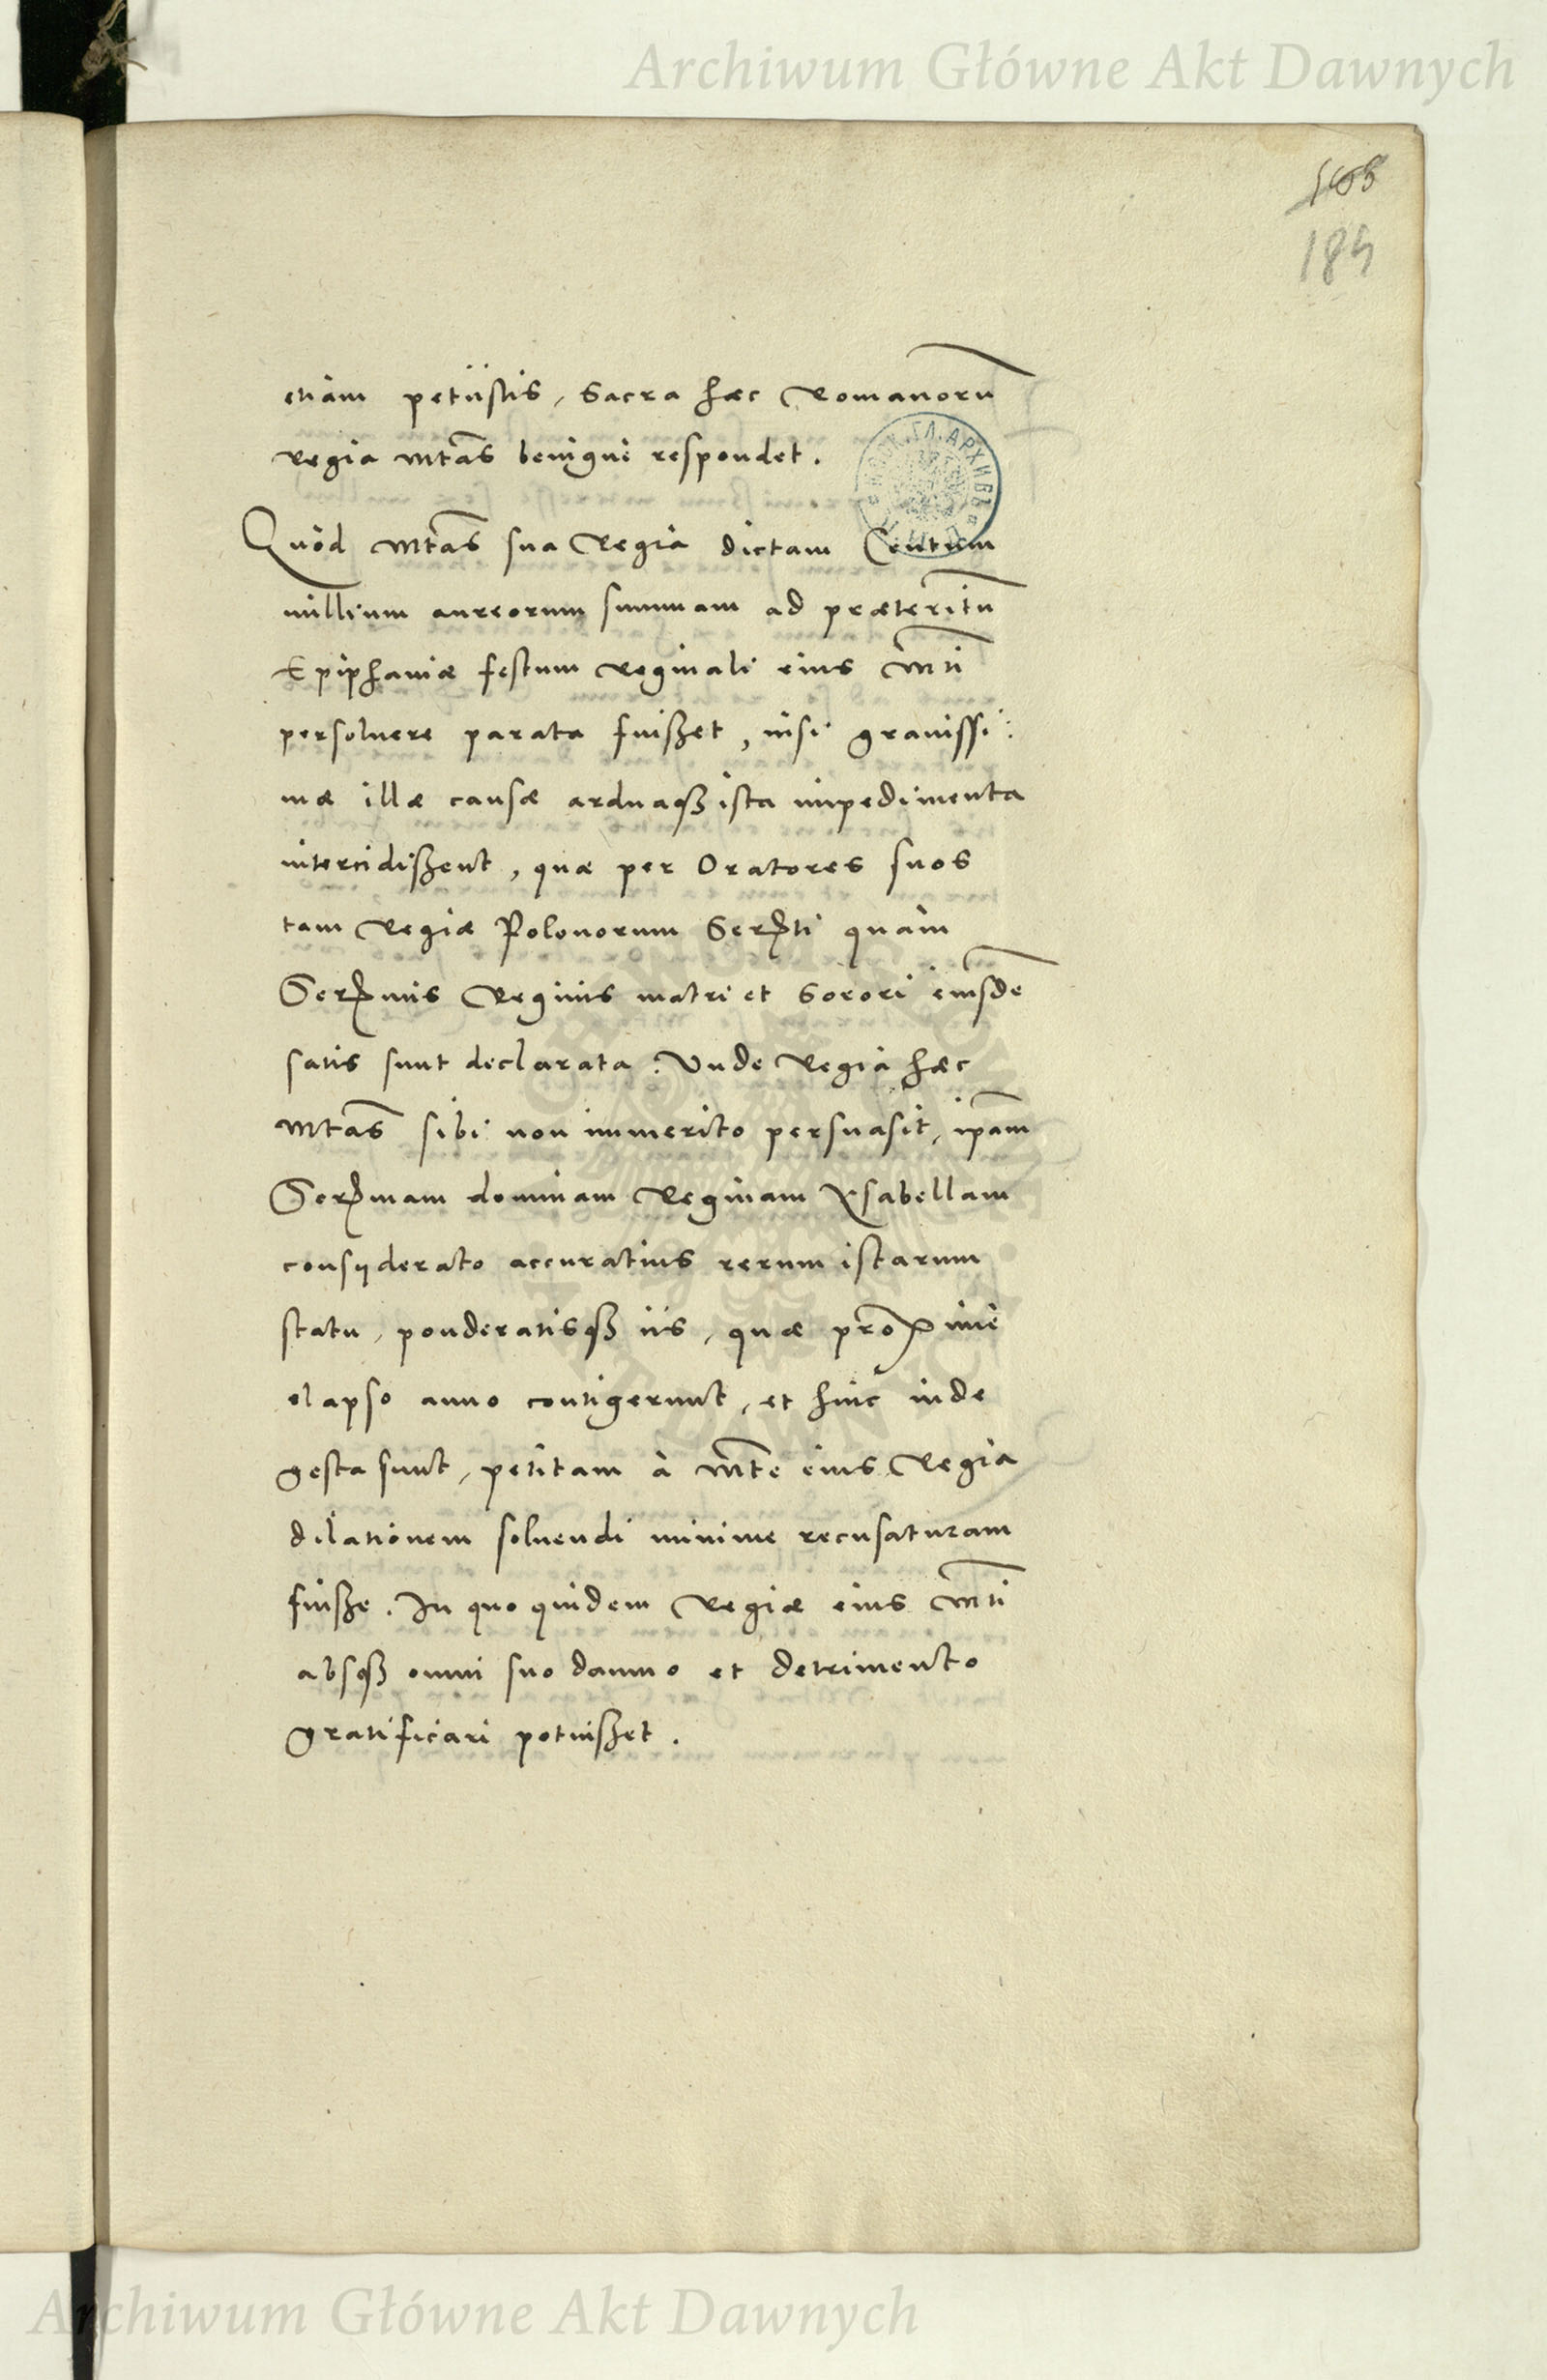 Archiwum Główne Akt Dawnych
189
etiam petijstis, Sacra hæc Romanorū
Regia Mtas benigne respondet.
Quod Mtas sua Regia dictam Centum
millium aureorum summam ad præteritū
Epiphaniæ festum Reginali eius Mti
persoluere parata fuisset, nisi grauissi:
mæ illæ causæ arduaqȝ ista impedimenta
intercidissent, quæ per Oratores suos
tam Regiæ Polonorum Serti quàm
Sermis Reginis matri et Sorori eiusdē
satis sunt declarata. Vnde Regia hæc
Mtas sibi non immerito persuasit, ipam
Sermam dominam Reginam Ysabellam
consyderato accuratius rerum istarum
statu, ponderatisqȝ iis, quæ proxime
elapso anno contigerunt, et hinc inde
gesta sunt, petitam à Mte eius Regia
dilationem soluendi minime recusaturam
fuisse. In quo quidem Regiæ eius Mti
absqȝ omni suo damno et detrimento
gratificari potuisset.
Archiwum Główne Akt Dawnych